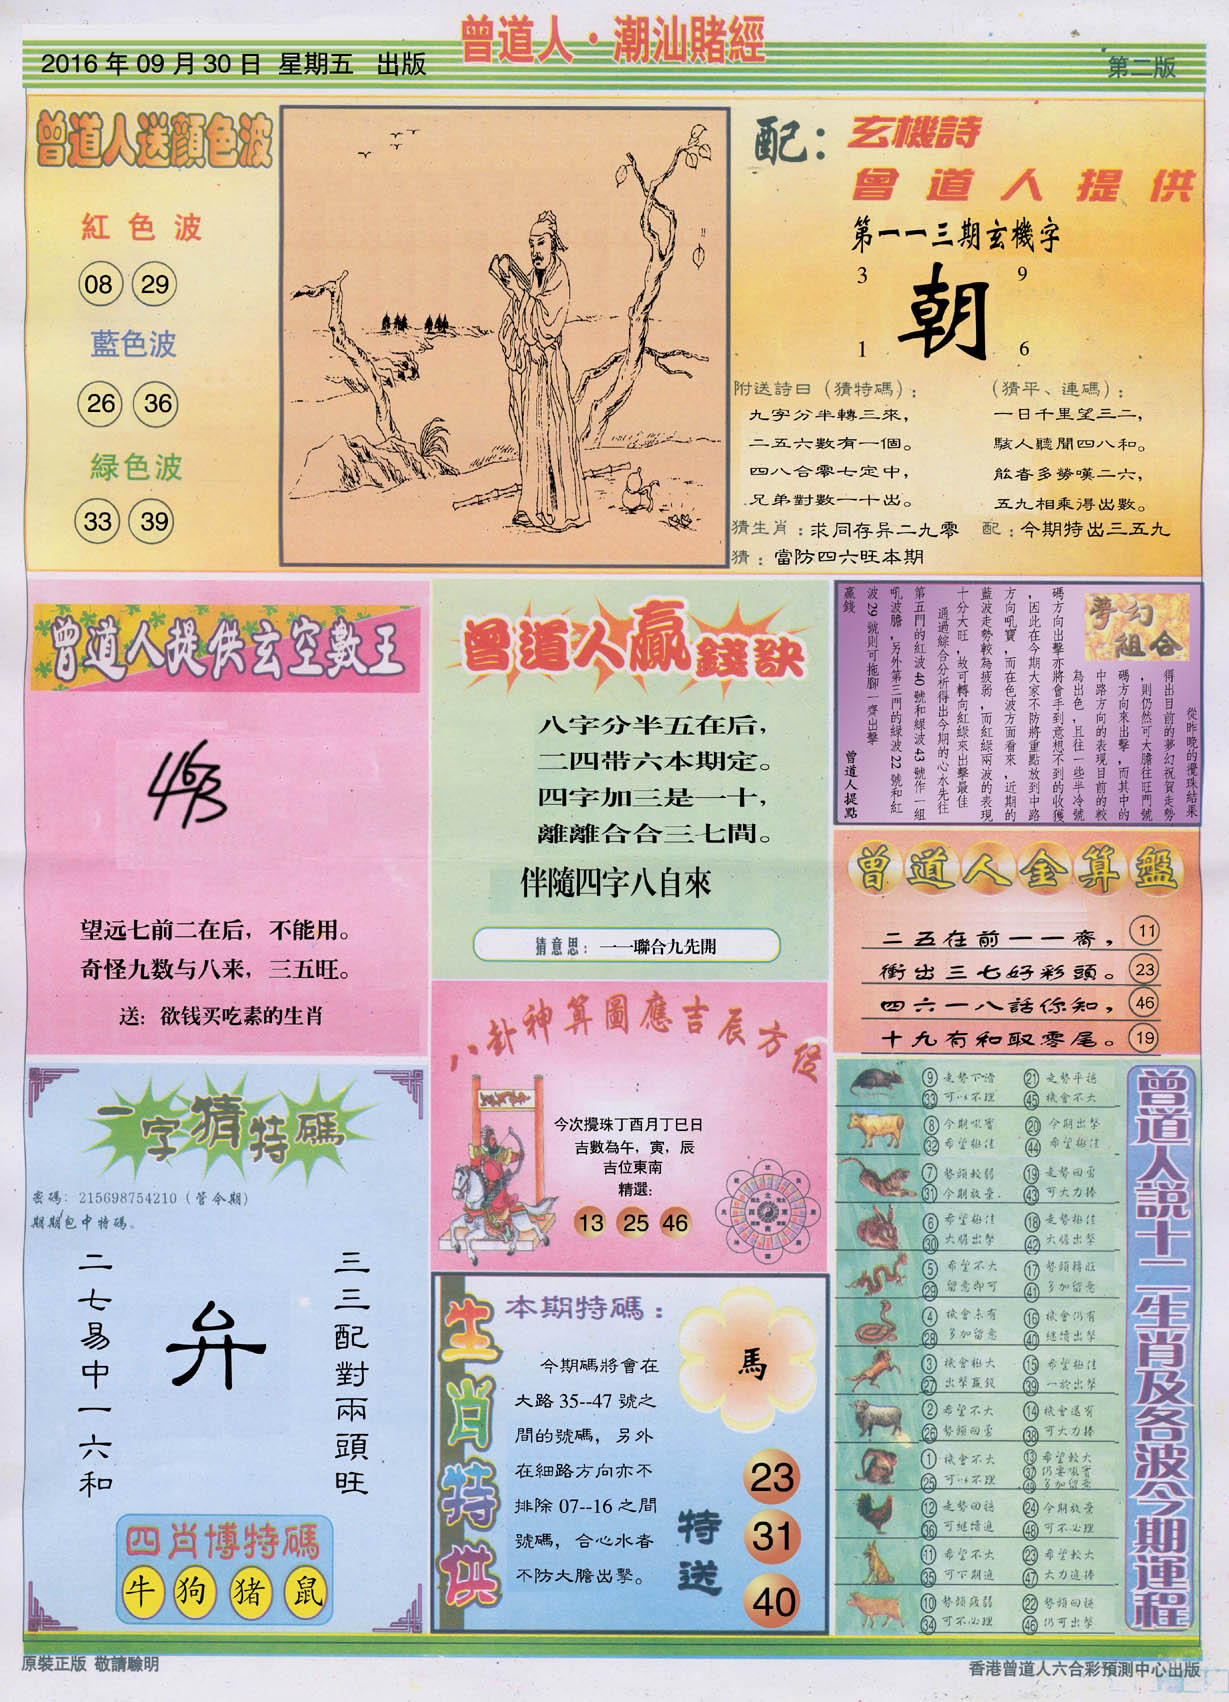 曾道人·潮汕賭經
2016 年 09 月 30 日 星期五 出版
第二版
曾道人送顔色波
紅色波
08 29
藍色波
26 36
緑色波
33 39
配：
玄機詩
曾道人提供
第一一三期玄機字
3 9
朝
1 6
附送詩曰（猜特碼）：
九字分半轉三來，
二五六數有一個。
四八合零七定中，
兄弟對數一十出。
（猜平、連碼）：
一日千里望三二，
駭人聽聞四八和。
能者多勞嘆二六，
五九相乘得出數。
猜生肖：求同存异二九零
配：今期特出三五九
猜：當防四六旺本期
曾道人提供玄空數王
463
望远七前二在后，不能用。
奇怪九数与八来，三五旺。
送：欲钱买吃素的生肖
曾道人贏錢訣
八字分半五在后，
二四带六本期定。
四字加三是一十，
離離合合三七間。
伴隨四字八自來
猜意思：一一聯合九先開
夢幻組合
從昨晚的攪珠結果
得出目前的夢幻祝賀走勢
，則仍然可大膽往旺門號
碼方向來出擊，而其中的
中路方向的表現目前的較
為出色，且往一些半冷號
碼方向出擊亦將會手到意想不到的收獲
，因此在今期大家不防將重點放到中路
方向吼寶，而在色波方面看來，近期的
藍波走勢較為疲弱，而紅綠兩波的表現
十分大旺，故可轉向紅綠來出擊最佳
通過綜合分析得出今期的心水先往
第五門的紅波 40 號和緑波 43 號作一組
吼波膽，另外第三門的綠波 22 號和紅
波 29 號則可拖腳一齊出擊
贏錢
曾道人提點
曾道人金算盤
二五在前一一齊， 11
衝出三七好彩頭。 23
四六一八話你知， 46
十九有和取零尾。 19
八卦神算圖應吉辰方位
今次攪珠丁酉月丁巳日
吉數為午，寅，辰
吉位東南
精選：
13 25 46
一字猜特碼
密碼：215698754210（管令期）
期期包中特碼。
三三配對兩頭旺
弁
二七易中一六和
四肖博特碼
牛 狗 猪 鼠
生肖特供
本期特碼：
今期碼將會在
大路 35--47 號之
間的號碼，另外
在細路方向亦不
排除 07--16 之間
號碼，合心水者
不防大膽出擊。
馬
特送
23
31
40
曾道人説十二生肖及各波今期運程
9 走勢下滑 21 走勢平穩
33 可以不理 45 機會不大
8 今期吸寶 20 今期出擊
32 希望極佳 44 希望極佳
7 勢頭較弱 19 走勢回勇
31 今期放棄 43 可大力捧
6 希望極佳 18 走勢極佳
30 大膽出擊 42 大膽出擊
5 希望不大 17 勢頭轉旺
29 留意即可 41 多加留意
4 機會未有 16 機會仍有
28 多加留意 40 繼續出擊
3 機會極大 15 希望極佳
27 出擊贏錢 39 一於出擊
2 希望不大 14 機會還有
26 勢頭回勇 38 可大力捧
1 機會不大 13 希望較大
25 可以不理 37 仍要吸寶
49 多加留意
12 走勢回穩 24 今期放棄
36 可繼續進 48 可不必理
11 希望不大 23 希望較大
35 可下期進 47 大力追捧
10 勢頭疲弱 22 勢頭回穩
34 可不必理 46 仍可出擊
原裝正版 敬請驗明
香港曾道人六合彩預測中心出版